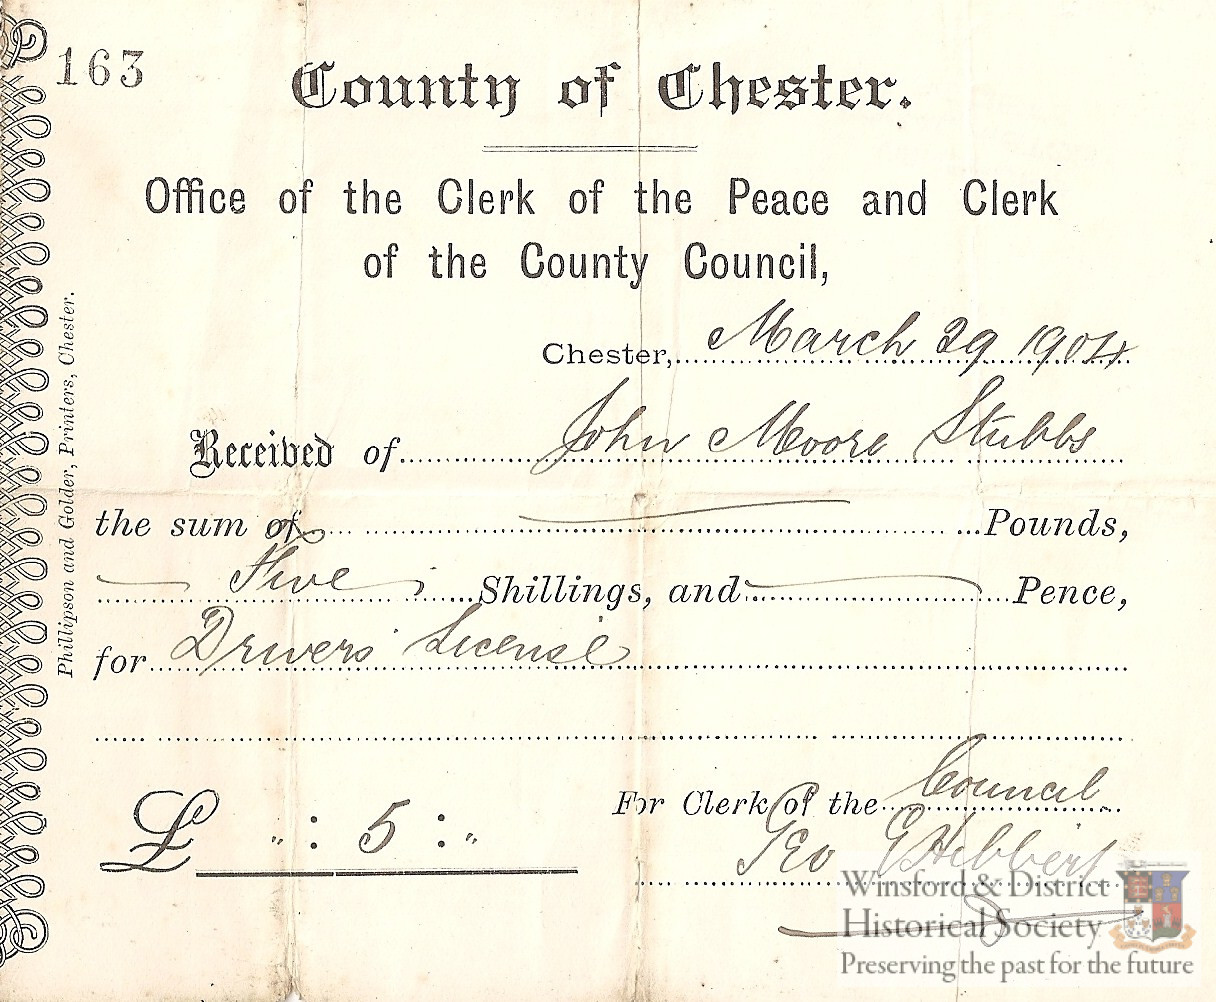 163
County of Chester.
Office of the Clerk of the Peace and Clerk
of the County Council,
Chester, March 29 1904
Received of John Moore Stubbs
the sum of Pounds,
Five Shillings, and Pence,
for Drivers' License
£ " : 5 : "
For Clerk of the Council
Geo E Hibbert
Phillipson and Golder, Printers, Chester.
Winsford & District
Historical Society
Preserving the past for the future